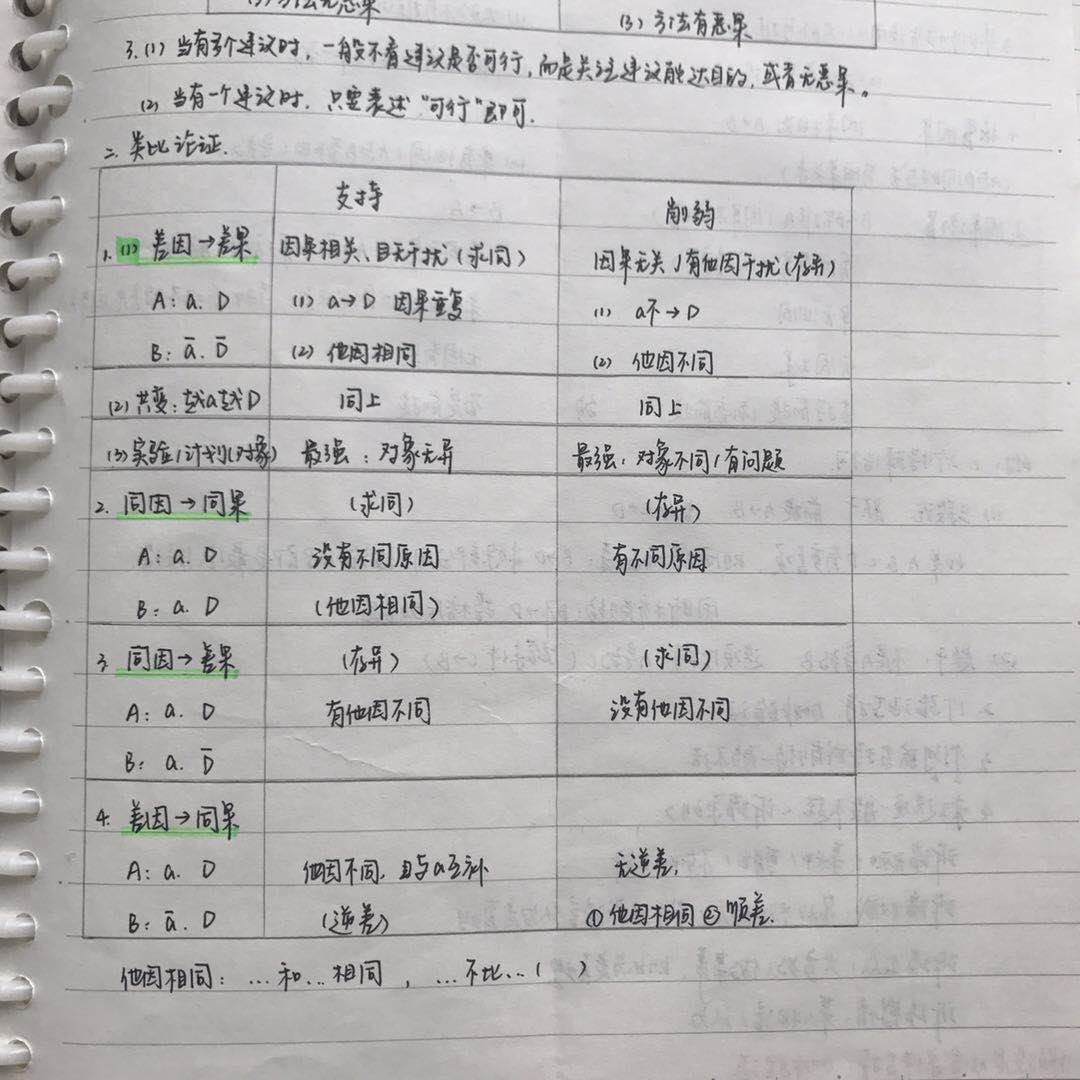 (3) 方法无恶果 (3) 方法有恶果
3.(1) 当有多个建议时，一般不看建议是否可行，而是关注建议能达目的，或者无恶果。
(2) 当有一个建议时，只要表达“可行”即可.
二. 类比论证.
支持 削弱
1. (1) 差因→差果 因果相关、且无干扰(求同) 因果无关/有他因干扰(存异)
A: a. D (1) a→D 因果重复 (1) a不→D
B: ā. D̄ (2) 他因相同 (2) 他因不同
(2) 共变: 越a越D 同上 同上
(3) 实验/计划(对象) 最强: 对象无异 最强: 对象不同/有问题
2. 同因→同果 (求同) (存异)
A: a. D 没有不同原因 有不同原因
B: a. D (他因相同)
3. 同因→差果 (存异) (求同)
A: a. D 有他因不同 没有他因不同
B: a. D̄
4. 差因→同果
A: a. D 他因不同, 且与a互补 无逆差,
B: ā. D (逆差) ①他因相同 ②顺差.
他因相同: …和…相同, …不比…( )